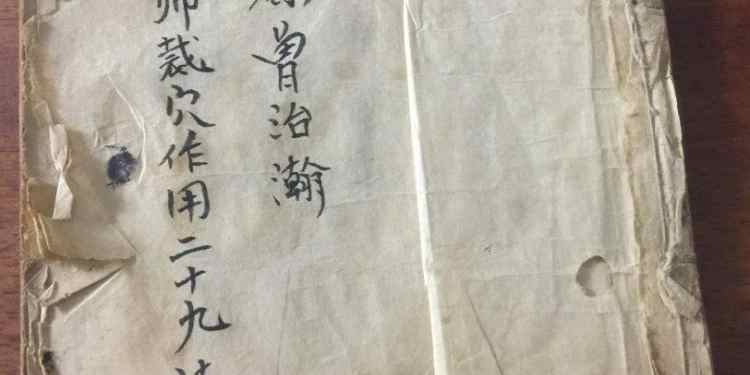 曾治瀚
师裁穴作用二十九